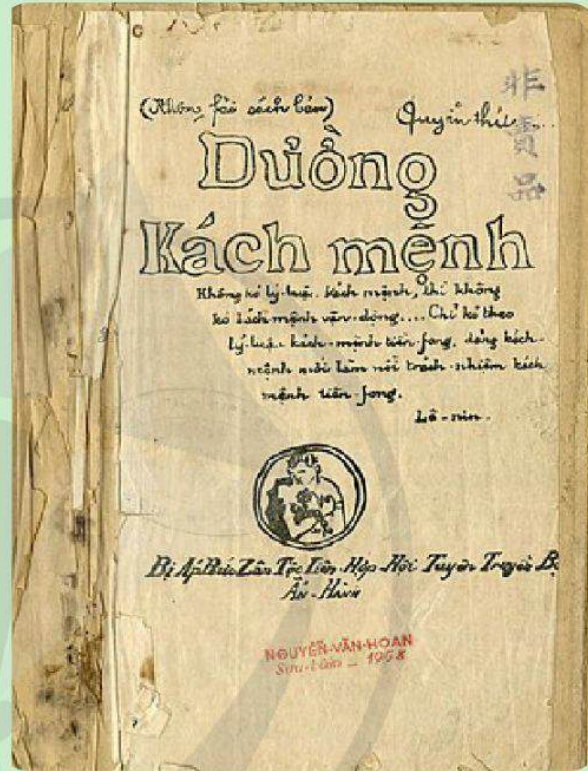 (Không fải sách bán)
Quyển thứ...
非賣品
Đường
Kách mệnh
Không kó lý-luận kách mệnh, thì không
kó kách mệnh vận-động.... Chỉ kó theo
lý-luận kách-mệnh tiền-fong, đảng kách-
mệnh mới làm nổi trách-nhiệm kách
mệnh tiền-fong.
Lê-nin.
Bị Áp Bức Zân Tộc Liên-Hợp-Hội Tuyên Truyền Bộ
Ấn-Hành
NGUYỄN-VĂN-HOAN
Sưu-tầm - 1958